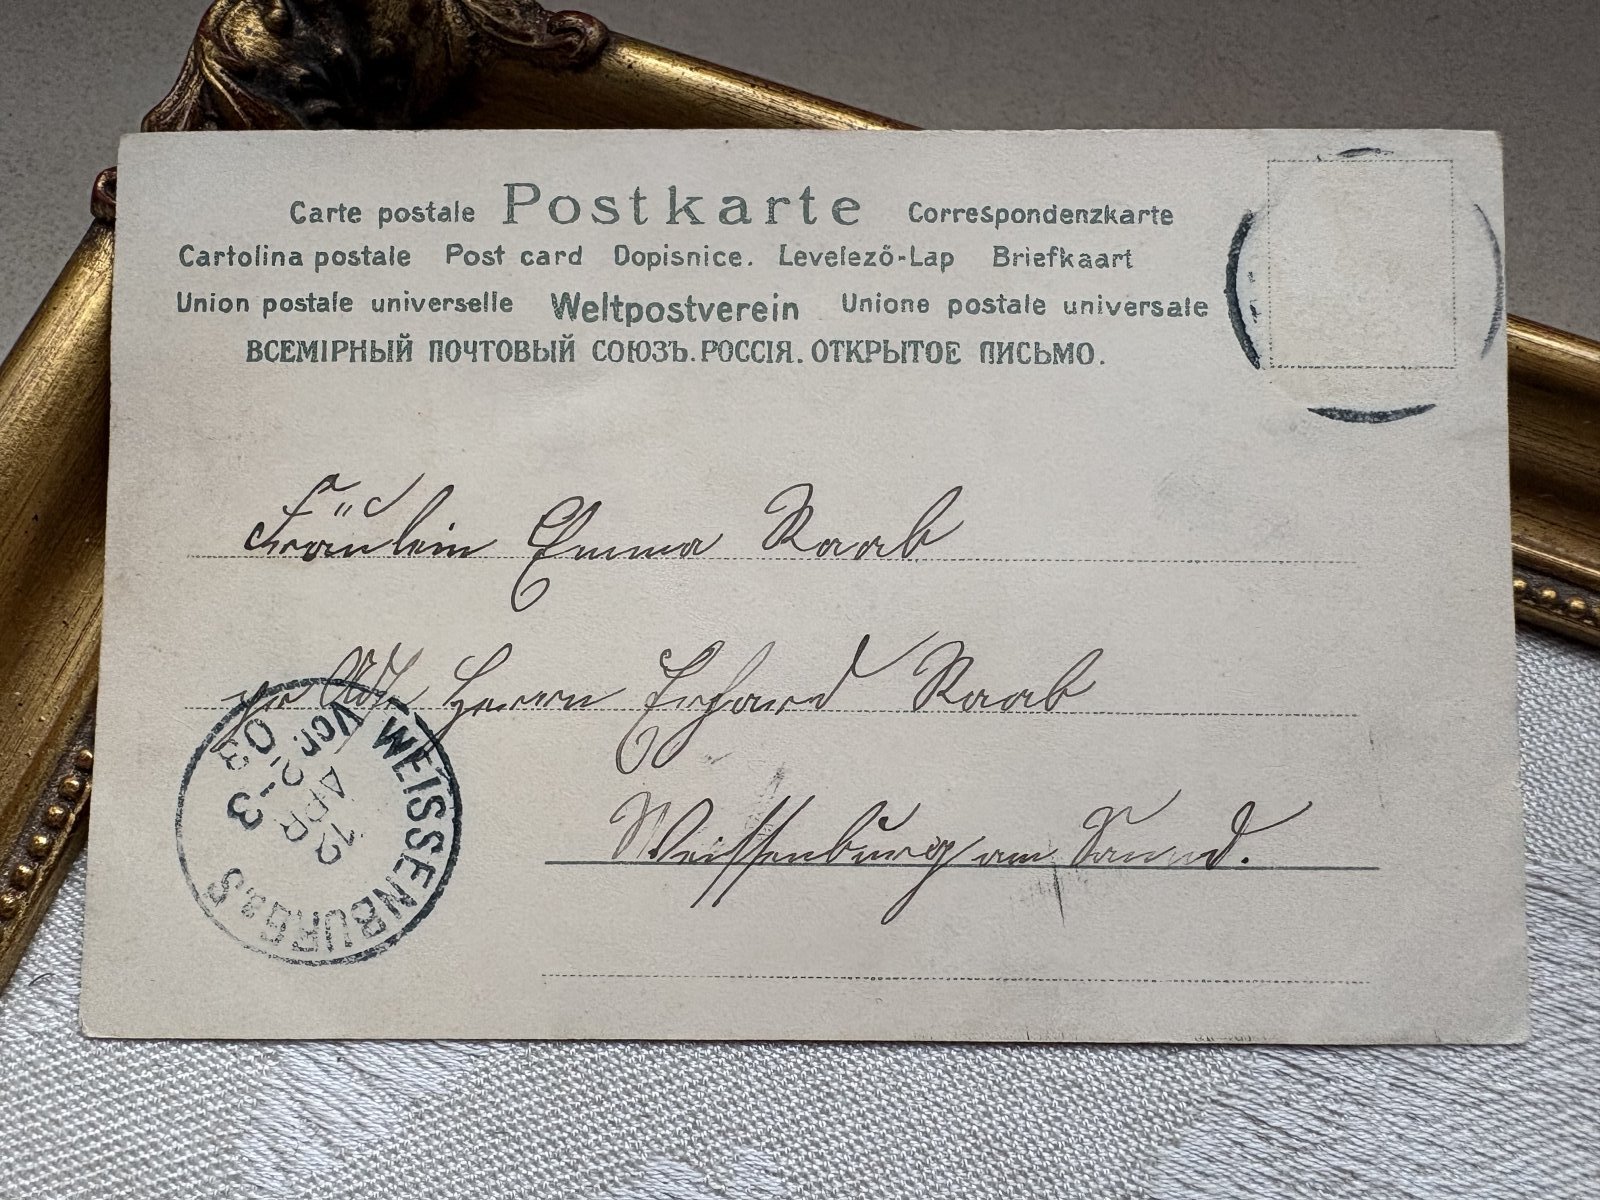 Carte postale Postkarte Correspondenzkarte
Cartolina postale Post card Dopisnice. Levelező-Lap Briefkaart
Union postale universelle Weltpostverein Unione postale universale
ВСЕМІРНЫЙ ПОЧТОВЫЙ СОЮЗЪ. РОССІЯ. ОТКРЫТОЕ ПИСЬМО.
Fräulein Emma Raab
Herrn Erhard Raab
Weissenburg am Sand.
WEISSENBURG a. S
12
APR
2-3
Vor. 03